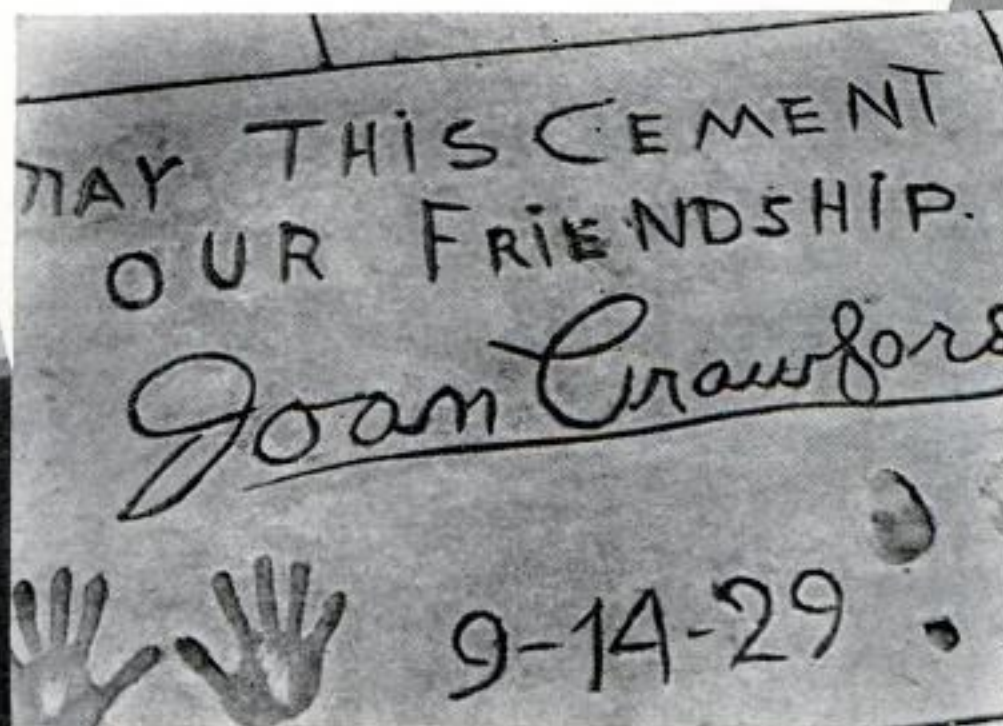 MAY THIS CEMENT
OUR FRIENDSHIP.
Joan Crawford
9-14-29